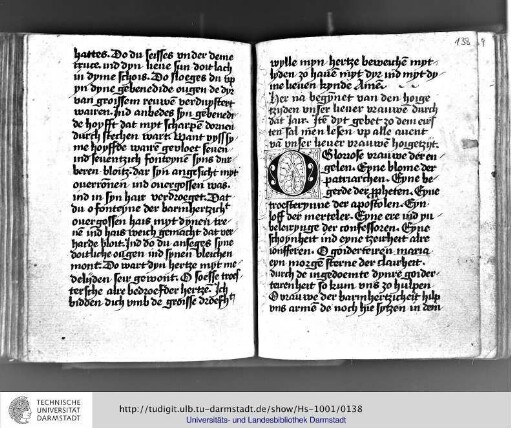 hattes. Do du seisses vnder deme
cruce. ind dyn lieue sun doit lach
in dyme schois. Do sloeges du vp
yn dyne gebenedide ougen de dyr
van groissem reuwen verduystert
waren. Ind ansedes syn gebenedi
de hoyfft dat myt scharpen dornen
durch stechen wart. Want vyss sy
me hoyffde waren gevloet seuen
ind seuentzich fonteynen syns dur
beren bloitz. dar syn angesicht myt
ouerronen ind ouergossen was.
ind in syn hair verdroeget. Dat
du o fonteyne der barmhertzicheit
ouergossen hais myt dynen tre
nen ind hais weich gemacht dat ver
harde bloit. Ind do du ansegs syne
doitliche ougen ind synen bleichen
mont. Do wart dyn hertze myt me
delijden seir gewont. O soesse troes
tersche alre bedroefder hertze. Ich
bidden dich vmb de groisse droeffh
138
wylle myn hertze bewechen myt
lyden zo hauen myt dyr ind myt dy
me lieuen kynde Amen.
Her na begynet van den hoige
tzijden vnser lieuer vrauwen durch
dat jair. Item dyt gebet zo dem eirs
ten sal men lesen vp alle auent
van vnser lieuer vrauwen hoigetzijt.
O Gloriose vrauwe der en
gelen. Eyne blome der
patriarchen. Eyne be
gerde der propheten. Eyne
troesterynne der apostolen. Eyn
hoff der merteler. Eyne ere ind
der confessoren. Eyne
schoynheit ind eyne tzierheit alre
ionfferen. O goidertieren maria
eyn morgen sterne der clairheit.
durch de ingedoemte dynre goider
tierenheit so kum vns zo hulpen
O vrauwe der barmhertzicheit hilp
vns armen de noch hie sytzen in dem
TECHNISCHE
UNIVERSITÄT
DARMSTADT
http://tudigit.ulb.tu-darmstadt.de/show/Hs-1001/0138
Universitäts- und Landesbibliothek Darmstadt